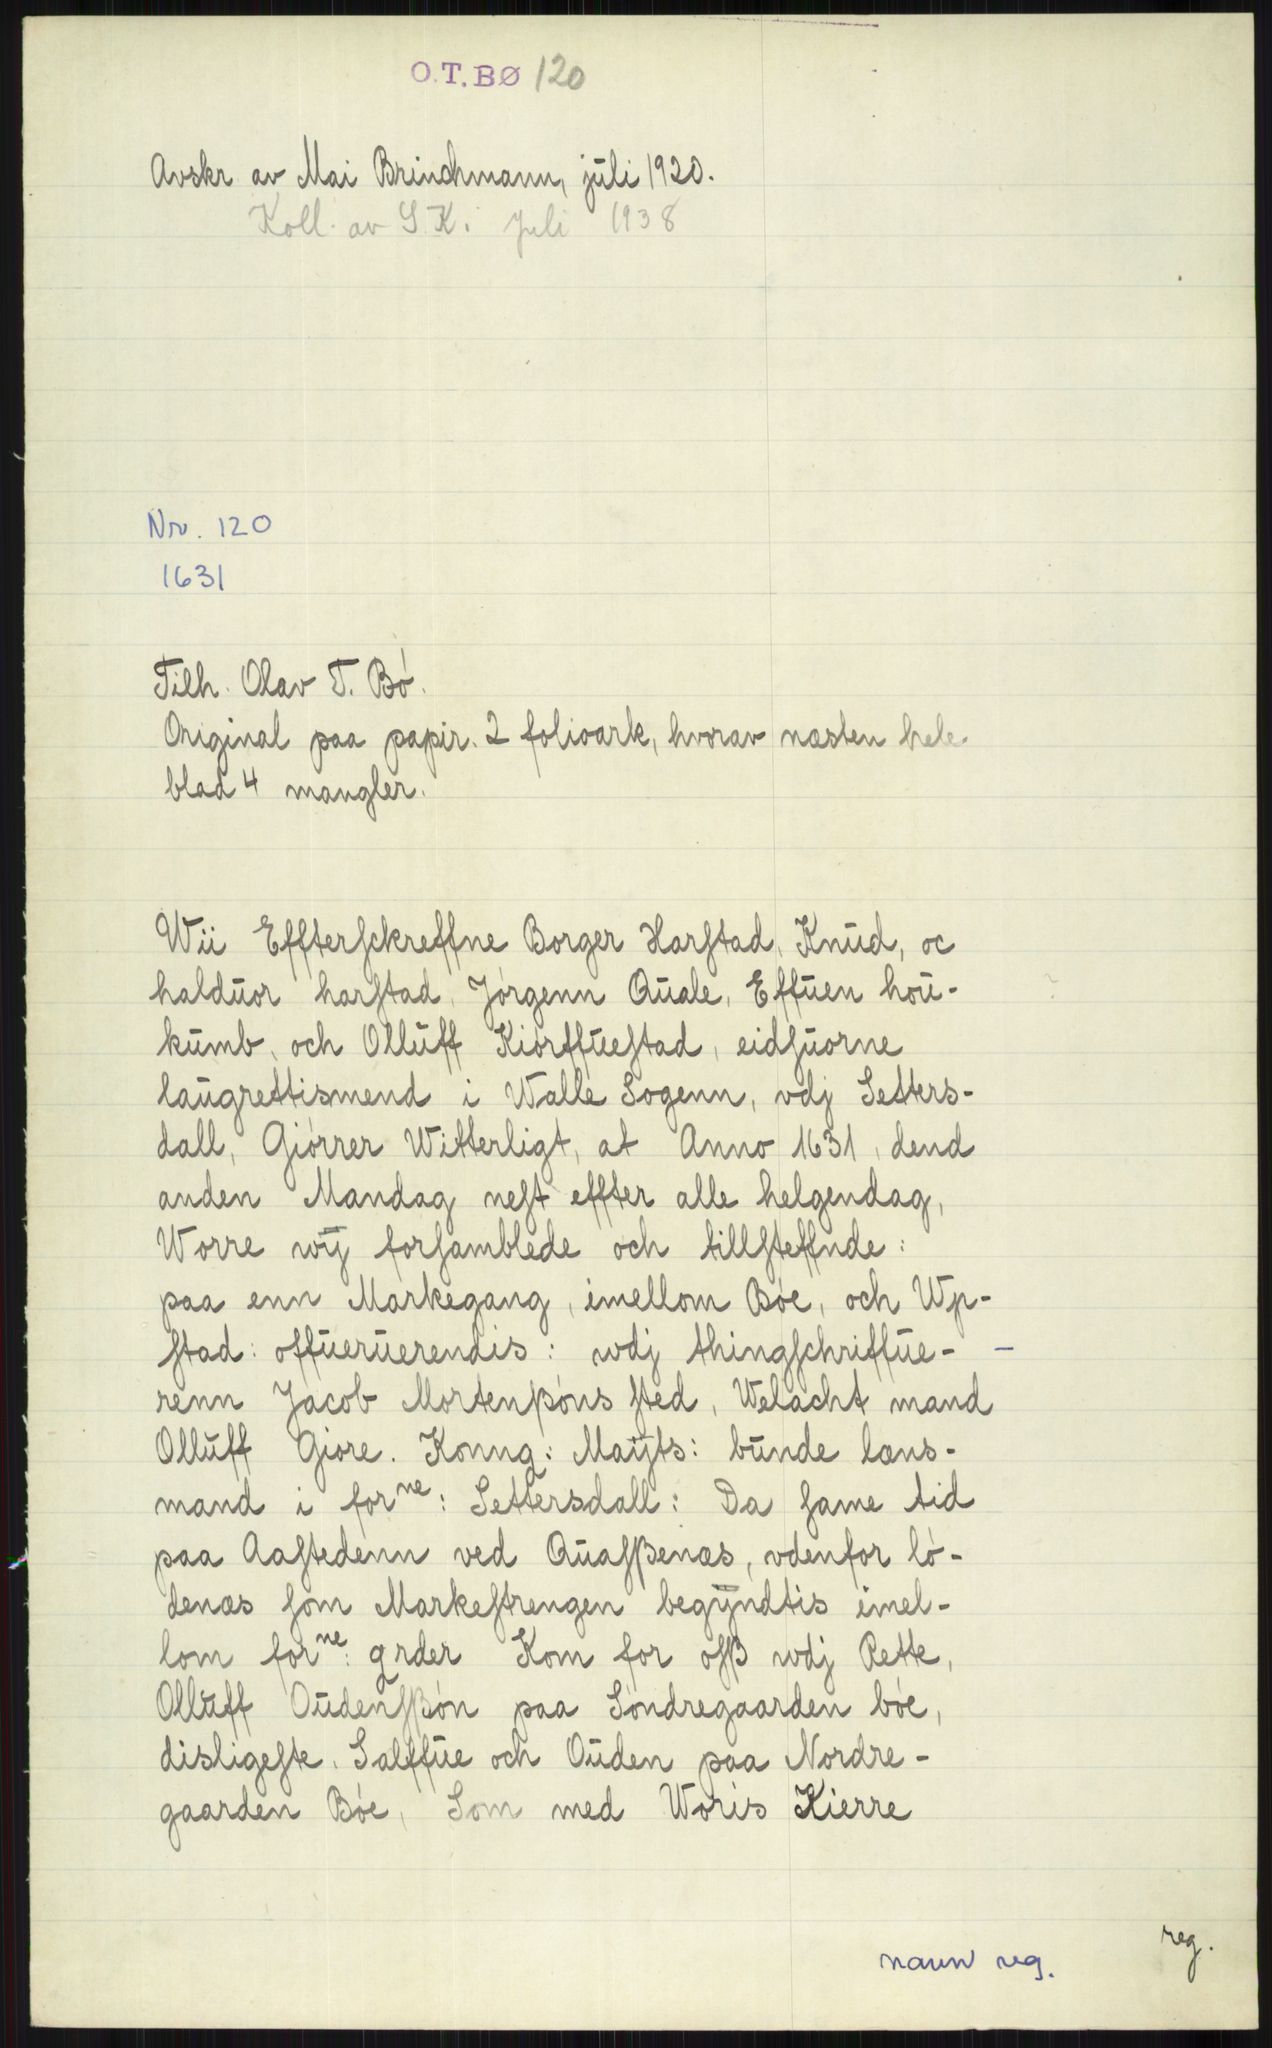 O.T.BØ 120
Avskr av Mai Brinchmann, juli 1920.
Koll. av S.K. juli 1938
Nr. 120
1631
Tilh. Olav T. Bó.
Original paa papir. 2 folioark, hvorav næsten hele
blad 4 mangler.
Wii Effterſckreffne Borger Harſtad, Knud, oc
halduor harſtad, Jórgenn Quale, Effuen hou-
kumb, och Olluff Kiórffueſtad, eidſuorne
laugrettismend i Walle Sogenn, vdj Setters-
dall, Giórrer Witterligt, at Anno 1631, dend
anden Mandag neſt effter alle helgendag,
Worre wij forſamblede och tillſteffnde:
paa enn Markegang, imellom Bóe, och Wp-
ſtad: offueruerendis: wdj thingſchriffue-
renn Jacob Mortenßóns ſted, Welacht mand
Olluff Giore. Konng: Maijts: bunde læns-
mand i forne: Settersdall: Da ſame tid
paa Aaſtedenn ved Quaſßenæs, vdenfor ló-
denæs ſom Markeſtrengen begyndtis imel-
lom forne: grder Kom for oſß wdj Rette,
Olluff Oudenſßón paa Sóndregaarden bóe,
disligeſte, Salffue och Ouden paa Nordre-
gaarden Bóe, Som med Woris Kierre
reg.
navn reg.